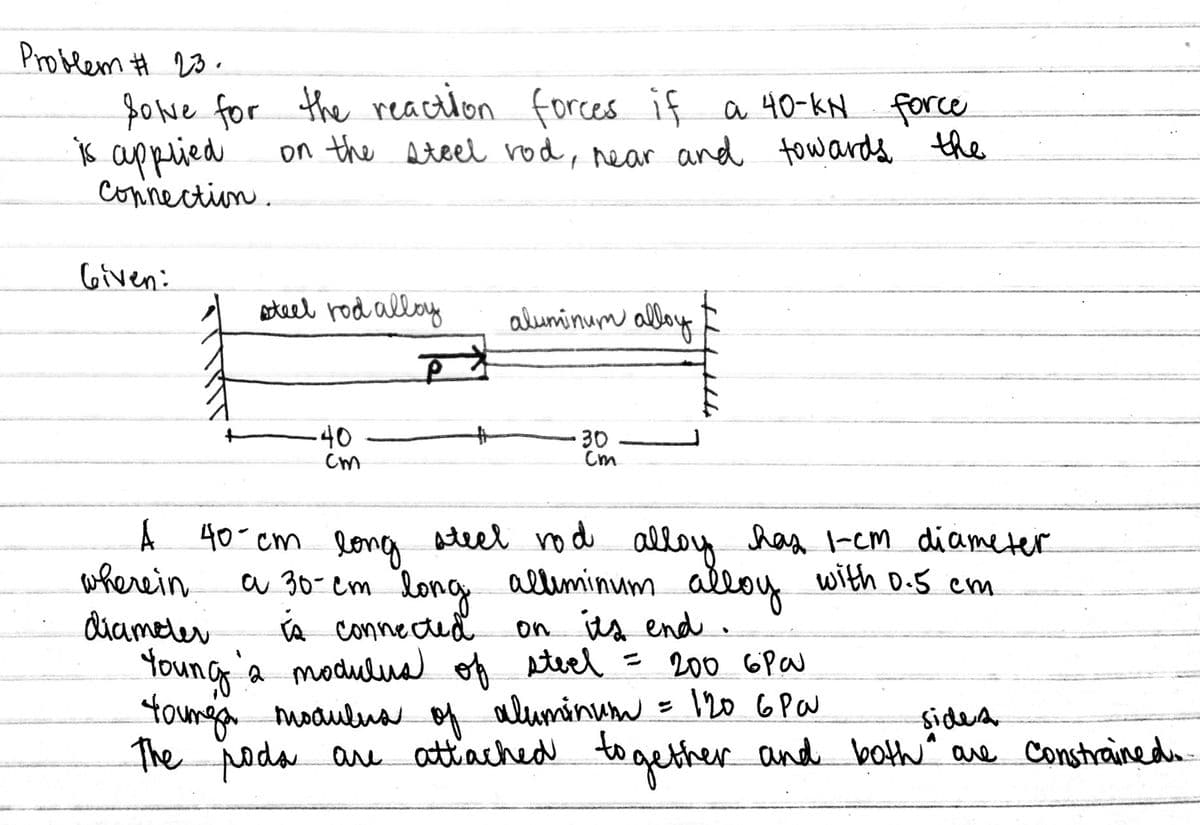 Problem # 23.
Solve for the reaction forces if a 40-kN force
is applied on the steel rod, near and towards the
connection.
Given:
steel rod alloy aluminum alloy
P
40 30
cm cm
A 40-cm long steel rod alloy has 1-cm diameter
wherein a 30-cm long alluminum alloy with 0.5 cm
diameter is connected on its end.
Young's modulus of steel = 200 GPa
Young's modulus of aluminum = 120 GPa
sides
The rods are attached together and both ^ are constrained.